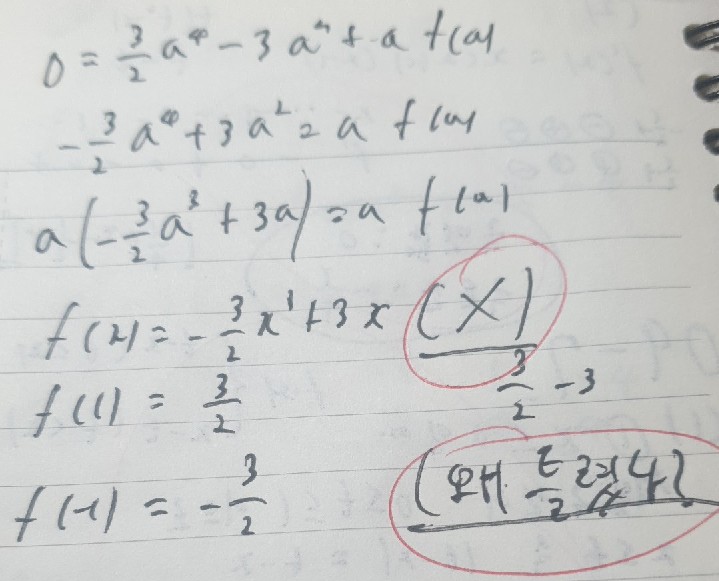 0 = 3/2 a⁴ - 3a² + a f(a)
-3/2 a⁴ + 3a² = a f(a)
a(-3/2 a³ + 3a) = a f(a)
f(x) = -3/2 x³ + 3x (X)
f(1) = 3/2
3/2 - 3
f(-1) = -3/2